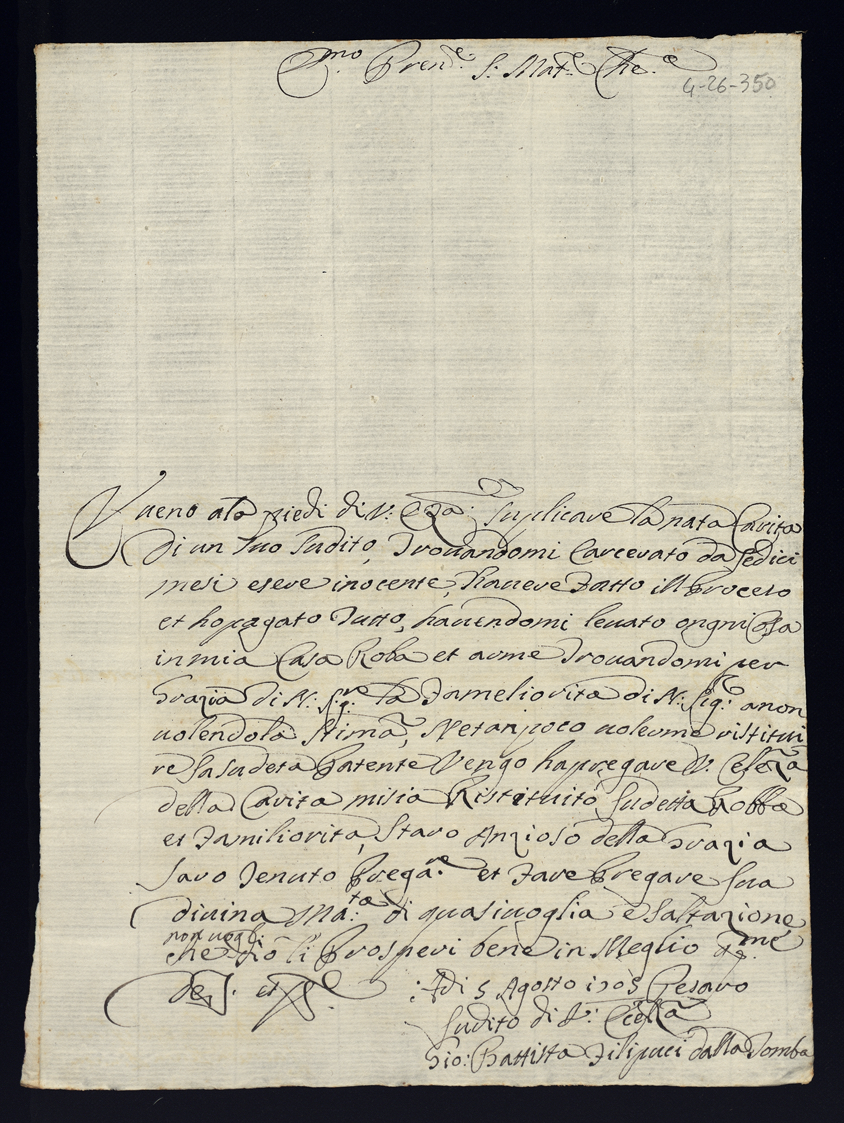 Emo Prene: S: Mate Che.e
4-26-350
Vueno ala piedi di V: Ecza: Suplicare la nata Carita
di un Suo Sudito, Trouandomi Carcerato da Sedici
mesi esere inocente, hauere Fatto ill Proceso
et ho pagato Tutto, hauendomi leuato ongni Cosa
in mia Casa Roba et arme Trouandomi per
Grazia di N: Sigre la Fameliorita di N: Sig: anon
uolendola Stimar, Ne tanpoco uolerme ristitui
re la sudeta Patente Vengo ha pregare V:
della Carita mi sia Ristituito Sudetta Robba
et Familiorita, Staro Anzioso della Grazia
Saro Tenuto Pregare et Fare Pregare Sua
diuina Mata: di qua si uoglia esaltazione
che Dio li Prosperi bene in Meglio
non uogli
Adi 5 Agosto 1705 Pesaro
Sudito di V: Ecella
Gio: Battista Filipuci dalla Tomba